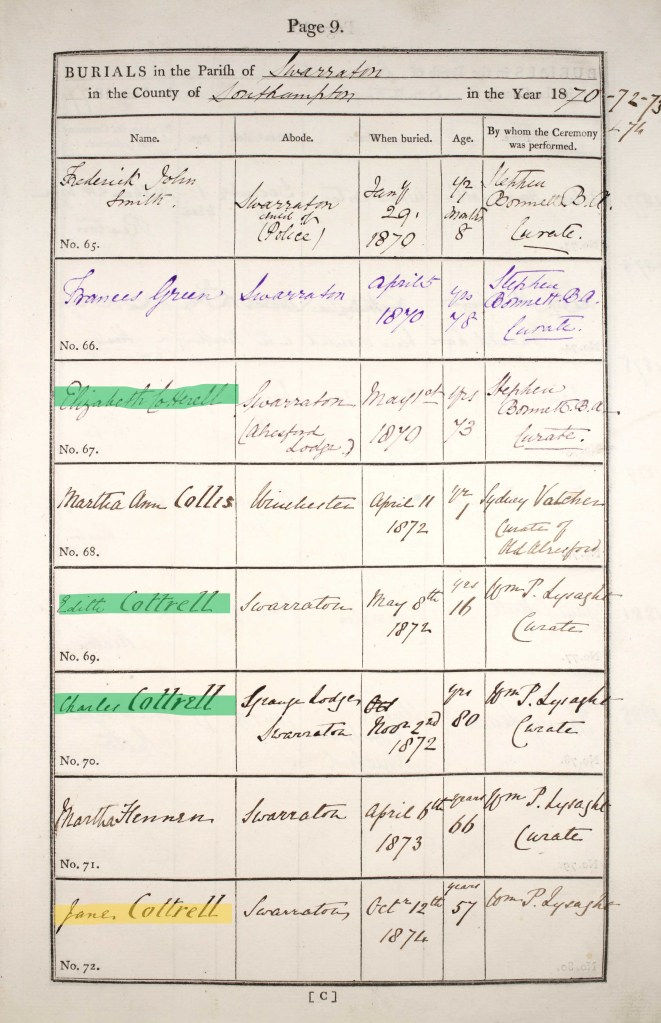 Page 9.
BURIALS in the Parish of Swarraton
in the County of Southampton in the Year 1870-72-73
-74
Name. Abode. When buried. Age. By whom the Ceremony was performed.
Frederick John Smith. Swarraton (Police) Jany 29. 1870 yr 1 months 8 Stephen Bonnett. B.A. Curate.
No. 65.
Frances Green Swarraton April 5 1870 yrs 78 Stephen Bonnett. B.A. Curate.
No. 66.
Elizabeth Cotterell Swarraton (Alresford Lodge.) May 1st 1870 yrs 73 Stephen Bonnett. B.A. Curate.
No. 67.
Martha Ann Collis Winchester April 11 1872 yr 1 Sydney Vatcher Curate of Old Alresford
No. 68.
Edith Cottrell Swarraton May 8th 1872 yrs 16 Wm P. Lysaght Curate
No. 69.
Charles Cottrell Grange Lodge Swarraton Oct Novr 2nd 1872 yrs 80 Wm P. Lysaght Curate
No. 70.
Martha Hennen Swarraton April 6th 1873 years 66 Wm P. Lysaght Curate
No. 71.
Jane Cottrell Swarraton Octr 12th 1874 years 57 Wm P. Lysaght
No. 72.
[C]